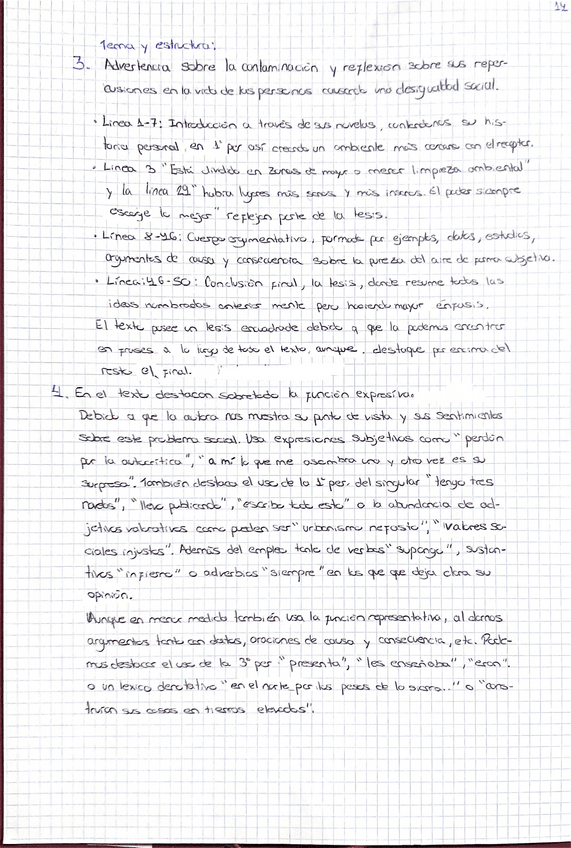 14
Tema y estructura:
3. Advertencia sobre la contaminación y reflexión sobre sus reper-
cusiones en la vida de las personas causando una desigualdad social.
• Línea 1-7: Introducción a través de sus novelas, contándonos su his-
toria personal, en 1ª per así creando un ambiente más cercano con el receptor.
• Línea 3 "Está dividido en zonas de mayor o menor limpieza ambiental"
y la línea 29 " habrá lugares más sanos y más insanos. El poder siempre
escoge lo mejor" reflejan parte de la tesis.
• Línea 8-46: Cuerpo argumentativo, formado por ejemplos, datos, estudios,
argumentos de causa y consecuencia sobre la pureza del aire de forma subjetiva.
• Línea: 46-50: Conclusión final, la tesis, donde resume todas las
ideas nombradas anterior mente pero haciendo mayor énfasis.
El texto posee un tesis encuadrada debido a que la podemos encontrar
en frases a lo largo de todo el texto, aunque, destaque por encima del
resto el final.
4. En el texto destacan sobretodo la función expresiva.
Debido a que la autora nos muestra su punto de vista y sus sentimientos
sobre este problema social. Usa expresiones subjetivas como "perdón
por la autocrítica", "a mí lo que me asombra una y otra vez es su
sorpresa". También destaca el uso de la 1ª per. del singular "tengo tres
novelas", "llevo publicando", "escribo todo esto" o la abundancia de ad-
jetivos valorativos como pueden ser "urbanismo nefasto", "valores so-
ciales injustos". Además del empleo tanto de verbos "supongo", sustan-
tivos "infierno" o adverbios "siempre" en los que que deja clara su
opinión.
Aunque en menor medida también usa la función representativa, al darnos
argumentos tanto con datos, oraciones de causa y consecuencia, etc. Pode-
mos destacar el uso de la 3ª per "presenta", "les enseñaba", "eran".
o un léxico denotativo "en el norte, por los pasos de la sierra..." o "cons-
truían sus casas en tierras elevadas".